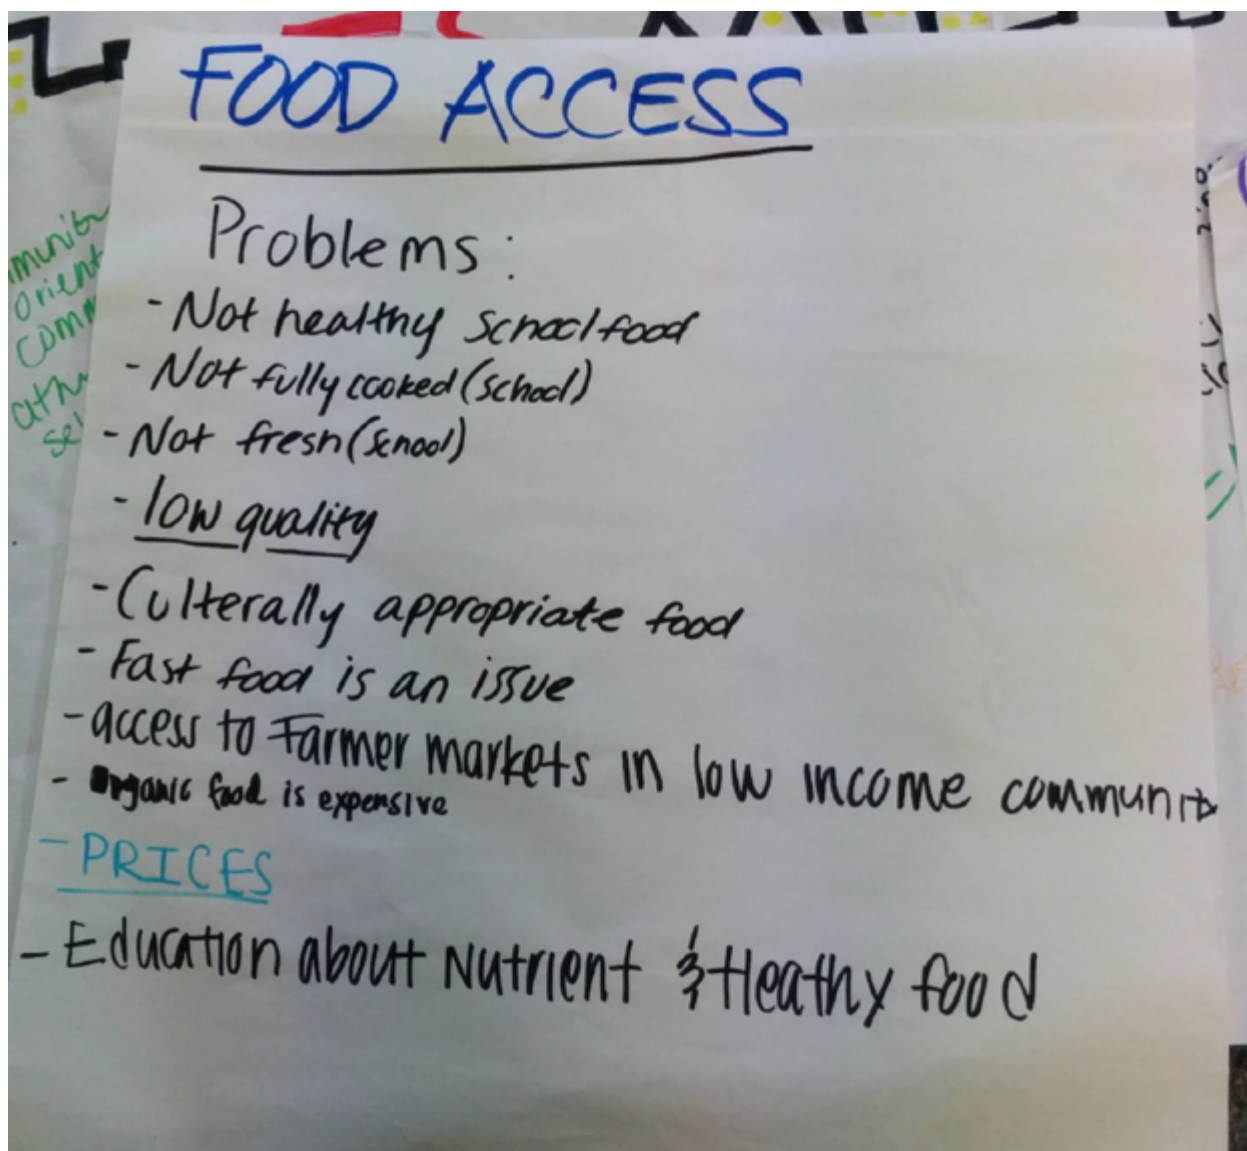 FOOD ACCESS
Problems:
- Not healthy school food
- Not fully cooked (school)
- Not fresh (school)
- low quality
- Culterally appropriate food
- Fast food is an issue
- access to Farmer markets in low income
- organic food is expensive
- PRICES
- Education about Nutrient & Heathy food
munity
orient
comm